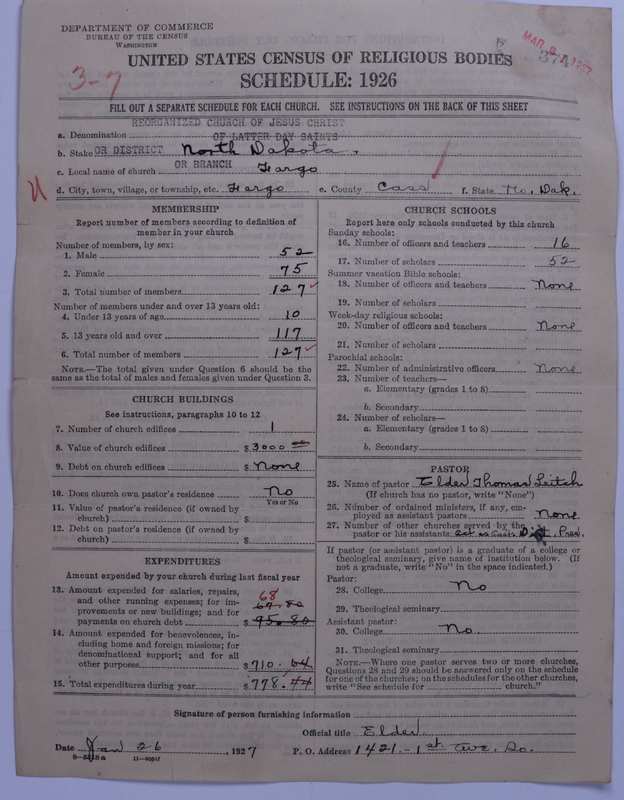 DEPARTMENT OF COMMERCE
BUREAU OF THE CENSUS
WASHINGTON
MAR 24 1927
374
3-7
UNITED STATES CENSUS OF RELIGIOUS BODIES
SCHEDULE: 1926
FILL OUT A SEPARATE SCHEDULE FOR EACH CHURCH. SEE INSTRUCTIONS ON THE BACK OF THIS SHEET
REORGANIZED CHURCH OF JESUS CHRIST
a. Denomination OF LATTER DAY SAINTS
b. Stake OR DISTRICT North Dakota.
c. Local name of church OR BRANCH Fargo
d. City, town, village, or township, etc. Fargo e. County Cass f. State No. Dak.
MEMBERSHIP
Report number of members according to definition of
member in your church
Number of members, by sex:
1. Male 52
2. Female 75
3. Total number of members 127
Number of members under and over 13 years old:
4. Under 13 years of age 10
5. 13 years old and over 117
6. Total number of members 127
NOTE.—The total given under Question 6 should be the
same as the total of males and females given under Question 3.
CHURCH BUILDINGS
See instructions, paragraphs 10 to 12
7. Number of church edifices 1
8. Value of church edifices $ 3000
9. Debt on church edifices $ None
10. Does church own pastor's residence No
Yes or No
11. Value of pastor's residence (if owned by
church) $
12. Debt on pastor's residence (if owned by
church) $
EXPENDITURES
Amount expended by your church during last fiscal year
13. Amount expended for salaries, repairs,
and other running expenses; for im-
provements or new buildings; and for
payments on church debt $ 95.80
68
67.80
14. Amount expended for benevolences, in-
cluding home and foreign missions; for
denominational support; and for all
other purposes $ 710.64
15. Total expenditures during year $ 778.44
CHURCH SCHOOLS
Report here only schools conducted by this church
Sunday schools:
16. Number of officers and teachers 16
17. Number of scholars 52
Summer vacation Bible schools:
18. Number of officers and teachers None
19. Number of scholars
Week-day religious schools:
20. Number of officers and teachers None
21. Number of scholars
Parochial schools:
22. Number of administrative officers None
23. Number of teachers—
a. Elementary (grades 1 to 8)
b. Secondary
24. Number of scholars—
a. Elementary (grades 1 to 8)
b. Secondary
PASTOR
25. Name of pastor Elder Thomas Leitch
(If church has no pastor, write "None")
26. Number of ordained ministers, if any, em-
ployed as assistant pastors None
27. Number of other churches served by the
pastor or his assistants Dist. Pres.
If pastor (or assistant pastor) is a graduate of a college or
theological seminary, give name of institution below. (If
not a graduate, write "No" in the space indicated.)
Pastor:
28. College No
29. Theological seminary
Assistant pastor:
30. College No
31. Theological seminary
NOTE.—Where one pastor serves two or more churches,
Questions 28 and 29 should be answered only on the schedule
for one of the churches; on the schedules for the other churches,
write "See schedule for church."
Signature of person furnishing information
Official title Elder
Date Jan 26, 1927 P. O. Address 1421-1st Ave. So.